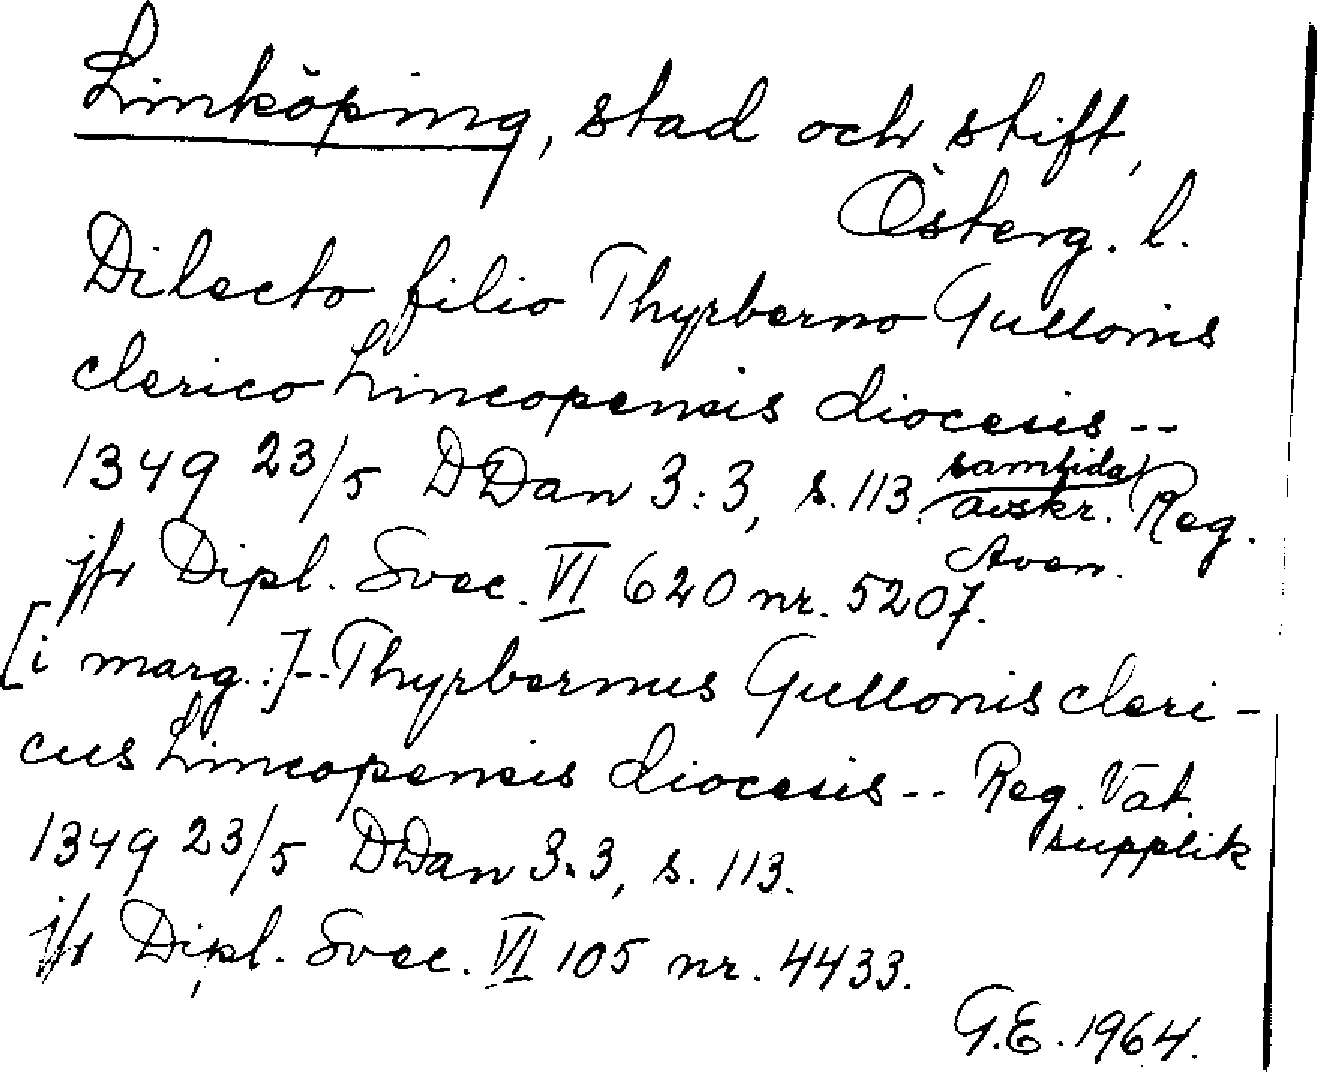 Linköping, stad och stift,
Österg. l.
Dilecto filio Thyrberno Gullonis
clerico Lincopensis diocesis --
1349 23/5 DDan 3:3, s. 113. samtida avskr. Reg. Aven.
jfr Dipl. Svec. VI 620 nr. 5207.
[i marg.:] -- Thyrbernus Gullonis cleri-
cus Lincopensis diocesis -- Reg. Vat.
supplik
1349 23/5 DDan 3:3, s. 113.
jfr Dipl. Svec. VI 105 nr. 4433.
G.E. 1964.